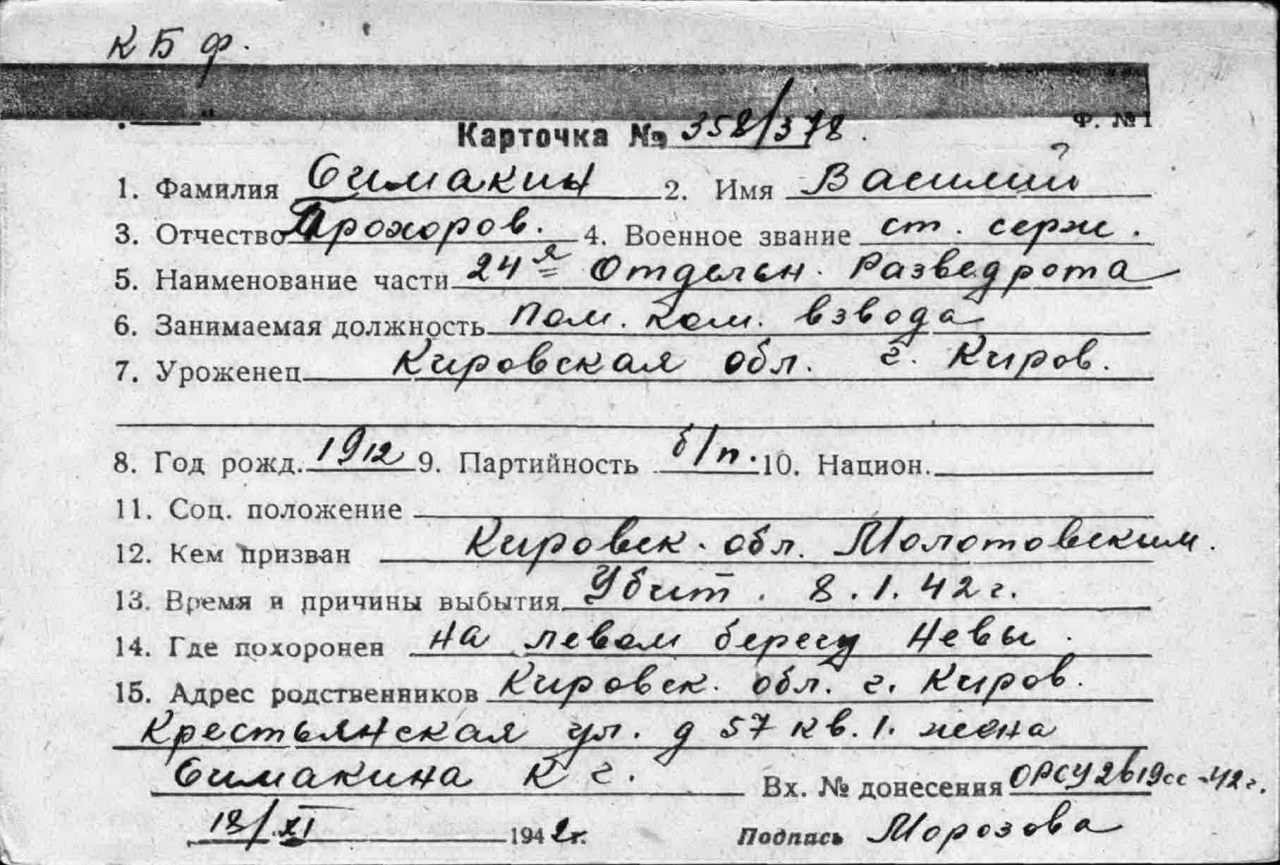 КБФ.
Карточка № 358/378. Ф. №1
1. Фамилия Симакин 2. Имя Василий
3. Отчество Прохоров. 4. Военное звание ст. серж.
5. Наименование части 24я Отдельн. Разведрота
6. Занимаемая должность Пом. ком. взвода
7. Уроженец Кировская обл. г. Киров.
8. Год рожд. 1912 9. Партийность б/п. 10. Национ.
11. Соц. положение
12. Кем призван Кировск. обл. Молотовским.
13. Время и причины выбытия Убит. 8.1.42 г.
14. Где похоронен на левом берегу Невы.
15. Адрес родственников Кировск. обл. г. Киров.
Крестьянская ул. д 57 кв. 1. жена
Симакина К г. Вх. № донесения ОРСУ 2819сс-42 г.
18/XI 1942 г. Подпись Морозова